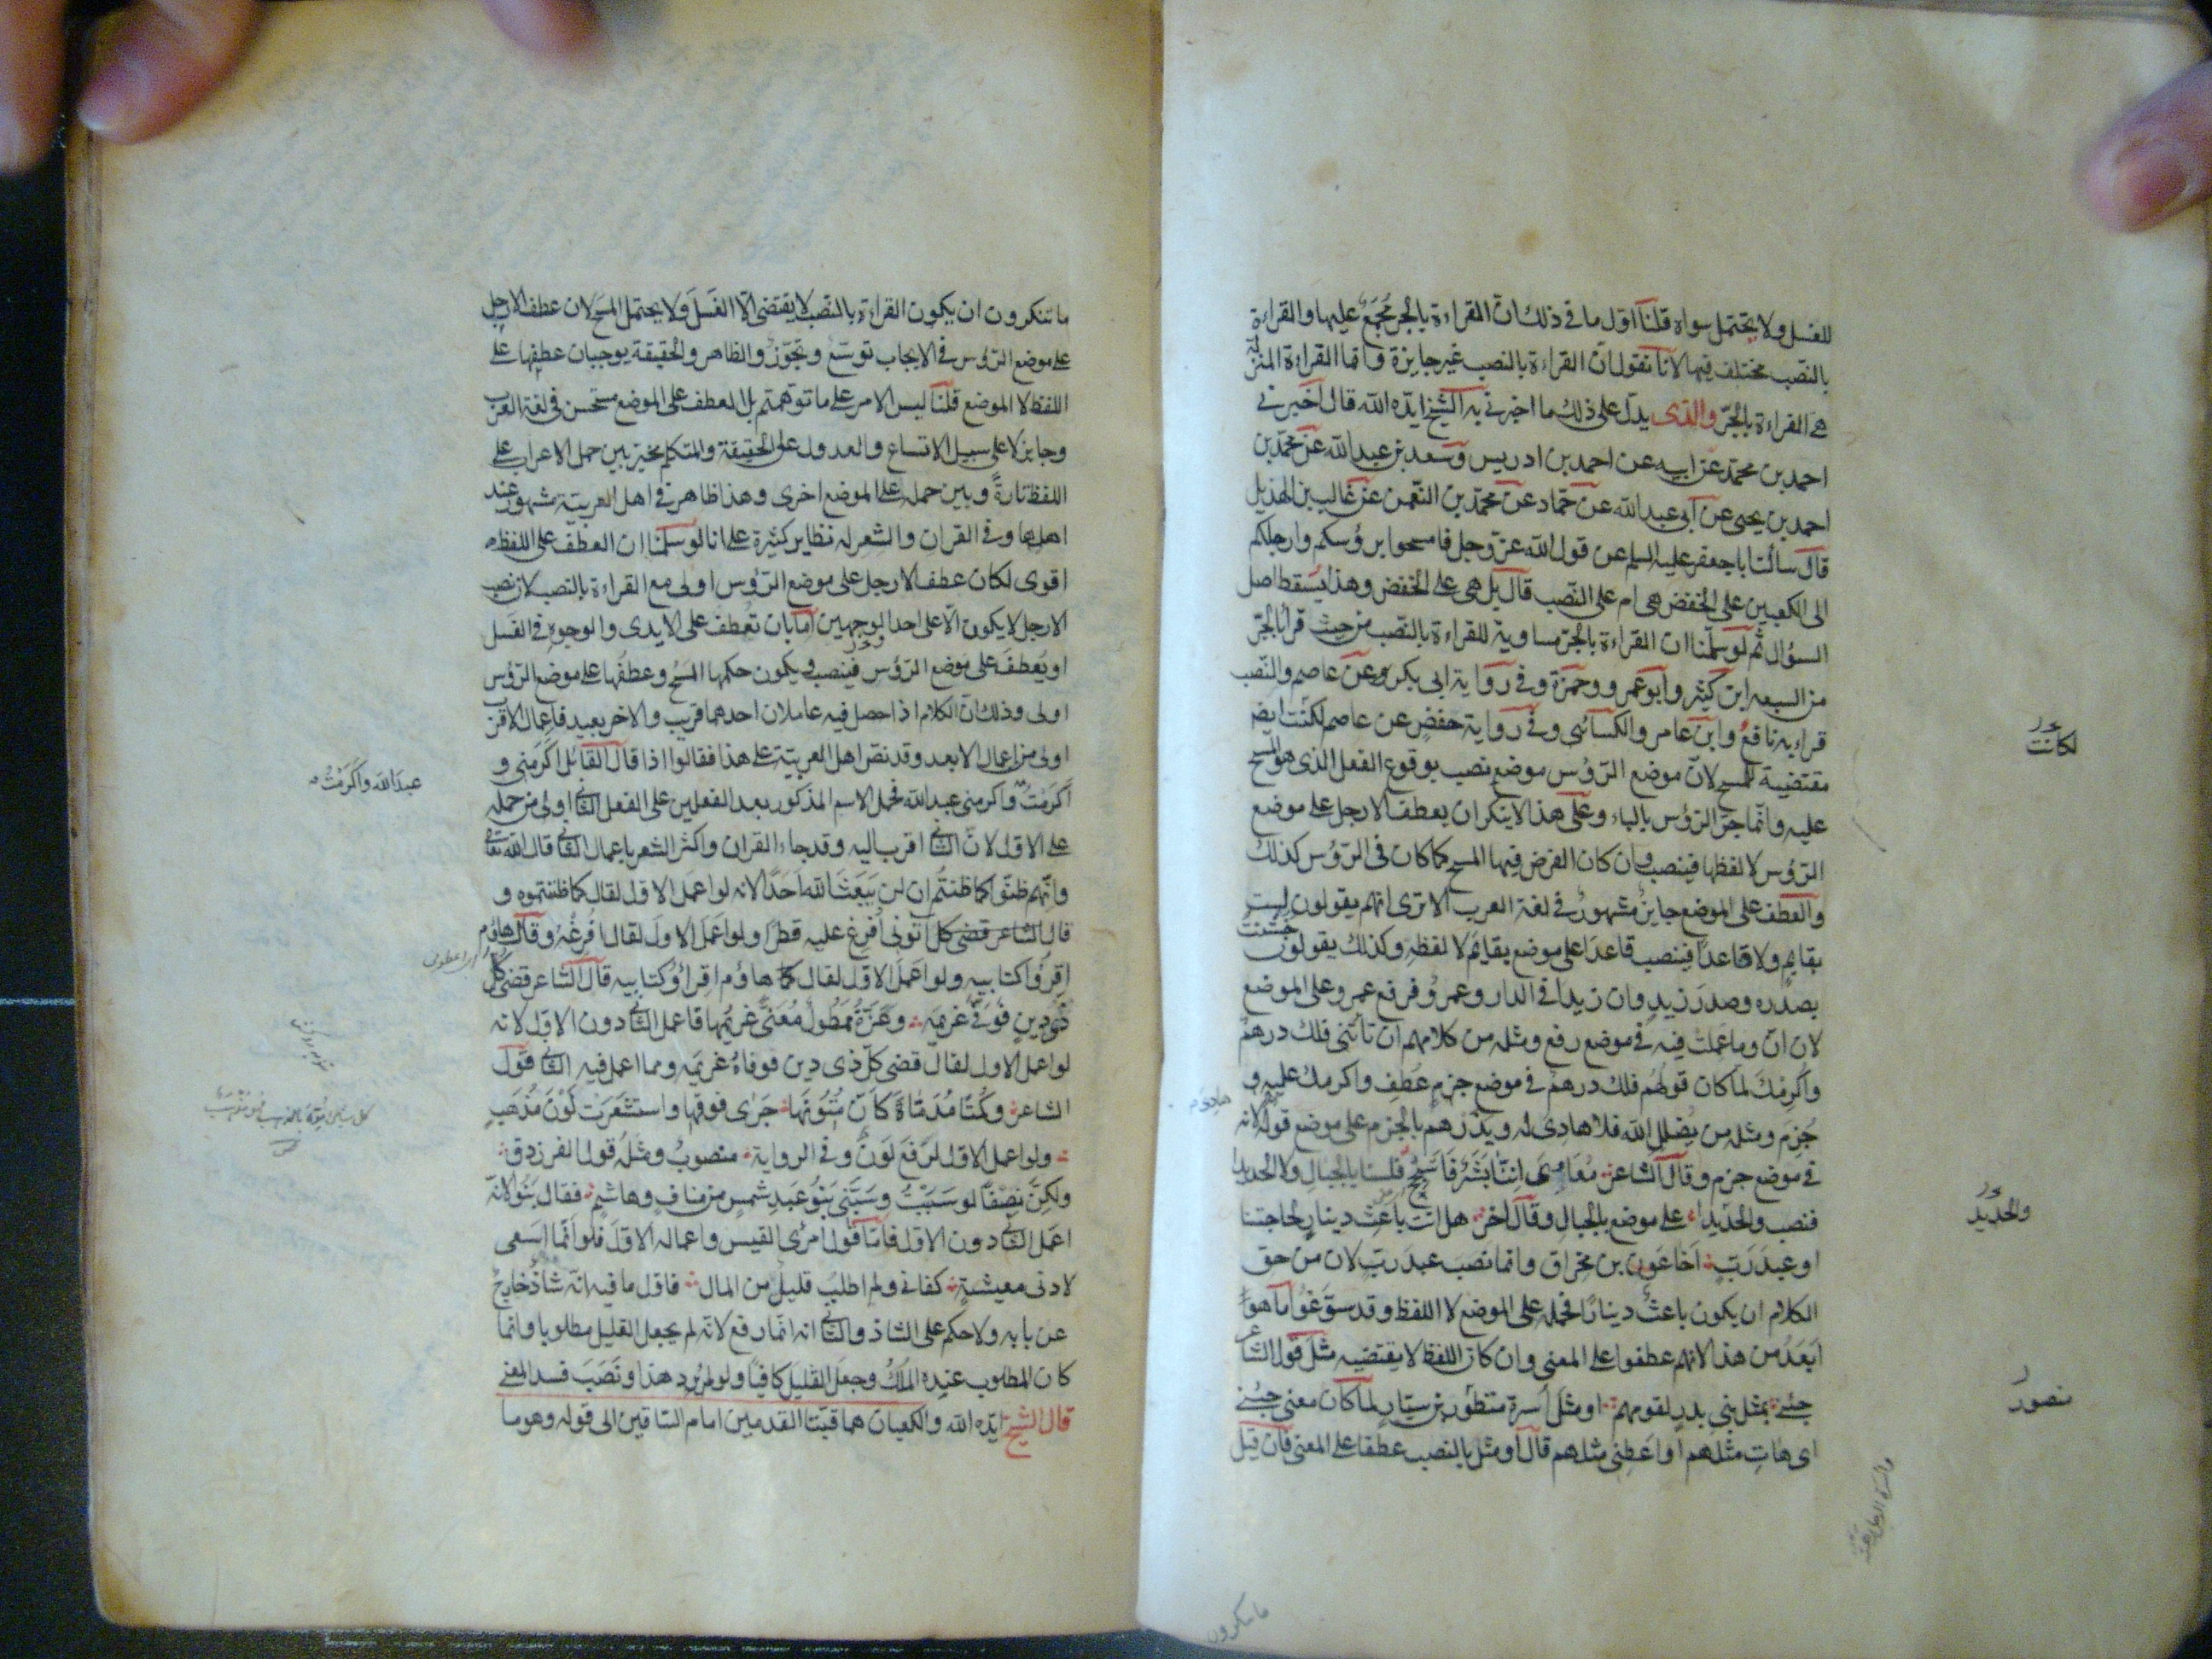 للغسل ولا يحتمل سواه قلنا اوّل ما فى ذلك انّ القراءة بالجرّ مُجمَع عليها والقراءة
بالنّصب مختلف فيها لانا نقول انّ القراءة بالنصب غير جايزة وانّما القراءة المنزلة
هى القراءة بالجرّ والّذى يدلّ على ذلك ما اخبرنى به الشيخ ايّده الله قال اخبرنى
احمد بن محمّد عن ابيه عن احمد بن ادريس وسعد بن عبد الله عن محمّد بن
احمد بن يحيى عن ابى عبد الله عن حمّاد عن محمّد بن النّعمن عن غالب بن الهذيل
قال سألت ابا جعفر عليه السلم عن قول الله عزّ وجل فامسحوا برؤسكم وارجلكم
الى الكعبين على الخفض هى ام على النّصب قال بل هى على الخفض وهذا يسقط اصل
السؤال ثم لو سلّمنا ان القراءة بالجرّ مساوية للقراءة بالنّصب من حيث قرأ بالجرّ
من السبعه ابن كثير وابو عمرو وحمزة وفى رواية ابى بكر وعن عاصم والنّصب
قراء به نافعُ وابن عامر والكسائى وفى رواية حفص عن عاصم لكنت ايضا
مقتضية للمسح لانّ موضع الرّؤس موضع نصب بوقوع الفعل الذى هو المسح
عليه وانّما جرّ الرّؤس بالباء وعلى هذا لا ينكر ان يعطف الارجل على موضع
الرّؤس لا لفظها فينصب وان كان الفرض فيها المسح كما كان فى الرّؤس كذلك
والعطف على الموضع جايز مشهور فى لغة العرب الا ترى انهم يقولون لست
بقايم ولا قاعداً فينصب قاعدا على موضع بقايم لا لفظه وكذلك يقولون خشنت
بصدره وصدرَ زيدٍ وان زيدا فى الدار وعمروُ فرفع عمرو على الموضع
لان انّ وما عملت فيه فى موضع رفع ومثله من كلامهم ان تأتنى فلك درهم
واكرِمْك لما كان قولهم فلك درهم فى موضع جزمٍ عطف واكرمك عليه و
جُزِمَ ومثله من يُضلل الله فلا هادى له ويذرهم بالجزم على موضع قوله لانه
فى موضع جزم وقال الشاعر مُعَاوِىَ اِنّنا بَشَرٌ فَاَسْجِحْ فلسنا بالجبال ولا الحديدا
فنصب والحديدا على موضع بالجبال وقال آخر هل انت باعث دينارٍ لحاجتنا
او عبدَ رَبٍّ اخا عَون بن مِخراق وانما نصب عبد ربّ لان من حق
الكلام ان يكون باعث ديناراً فحمله على الموضع لا اللفظ وقد سوّغوا ما هو
ابعَدُ من هذا لانهم عطفوا على المعنى وان كان اللفظ لا يقتضيه مثل قول الشاعر
جئنى بمثل بنى بدر لقومهم او مثلَ اسرة منظور بن سيّار لما كان معنى جئنى
اى هاتِ مثلهم او اعطِنى مثلهم قال او مثل بالنصب عطفا على المعنى فان قيل
لكانت
والحديد
منصور
ما تنكرون
ما تنكرون ان يكون القراءة بالنّصب لا يقتضى الّا الغَسلَ ولا يحتمل المسح لان عطف الارجل
على موضع الرّؤس فى الايجاب توسّعُ وتجوّزُ والظاهر والحقيقة يوجبان عطفها على
اللفظ لا الموضع قلنا ليس الامر على ما توهّمتم بل العطف على الموضع مستحسن فى لغة العرب
وجايز لا على سبيل الاتساع والعدول عن الحقيقة والمتكلم مخيّر بين حمل الاعراب على
اللفظ تارةً وبين حمله على الموضع اخرى وهذا ظاهر فى اهل العربيّة مشهور عند
اهلها وفى القران والشعر له نظاير كثيرة على انا لو سلّمنا ان العطف على اللفظ
اقوى لكان عطف الارجل على موضع الرّؤس اولى مع القراءة بالنصب لان نصب
الارجل لا يكون الّا على احد الوجهين اما بان تُعطف على الايدى والوجوه فى الغسل
او يُعطف على موضع الرّؤس فينصب ويكون حكمها المسح وعطفها على موضع الرّؤس
اولى وذلك انّ الكلام اذا حصل فيه عاملان احدهما قريب والاخر بعيد فاعمال الاقرب
اولى من اعمال الابعد وقد نصّ اهل العربيّة على هذا فقالوا اذا قال القائل اكرمنى و
اكرَمْتُ واكرمنى عبد الله فحمل الاسم المذكور بعد الفعلين على الفعل الثانى اولى من حمله
على الاول لانّ الثانى اقرب اليه وقد جاء القران واكثر الشعر باعمال الثانى قال الله تعالى
وانّهم ظنّوا كما ظننتم ان لن يبعَثَ الله اَحَدًا لانه لو اعمَل الاول لقال كما ظننتموه و
قال الشاعر قضى كل اتونى اُفرِغ عليه قطراً ولو اعمَلَ الاولَ لقال اُفرِغْهُ وقال هاؤم
اقرؤا كتابيه ولو اعمل الاول لقال هاؤم اقرأوُ كتابيه قال الشاعر قضى كلّ
ذى دينٍ فوفّى غريمه وعَزّةُ مَمطولٌ مُعَنّى غريمُها فاعمل الثانى دون الاول لانه
لو اعمل الاول لقال قضى كلّ ذى دين فوفاهُ غريمه ومما اعمل فيه الثانى قول
الشاعر وكُمتًا مُدَمّاةً كانّ مُتُونَها جَرَى فوقها واستَشعَرَت لَونَ مُذهَبِ
ولو اعمل الاول لرَفعَ لَونَ وفى الرواية منصوبُ ومثلُه قول الفرزدق
ولكِنّ نِصْفًا لو سَبَبْتُ وسَبَّنى بَنُو عَبدِ شمسٍ من منافٍ وهاشمِ فقال بَنُو لانّه
اعمَل الثانى دون الاول فامّا قول امرئ القيس واعماله الاول فلو انّما اسعى
لادنى معيشةٍ كفانى ولم اطلُب قليلٌ من المال فاوّل ما فيه انّه شاذُ خارجُ
عن بابه ولا حكم على الشاذ والثانى انه انّما رفع لانّه لم يجعل القليل مطلوبا وانما
كان المطلوب عنده الملكُ وجعل القليل كافياً ولو لم يُرِد هذا ونَصَبَ فسد المعنى
قال الشيخ ايّده الله والكعبان هما قبّتا القدمين امام السّاقين الى قوله وهو ما
عبدَ الله واكرمْتُ